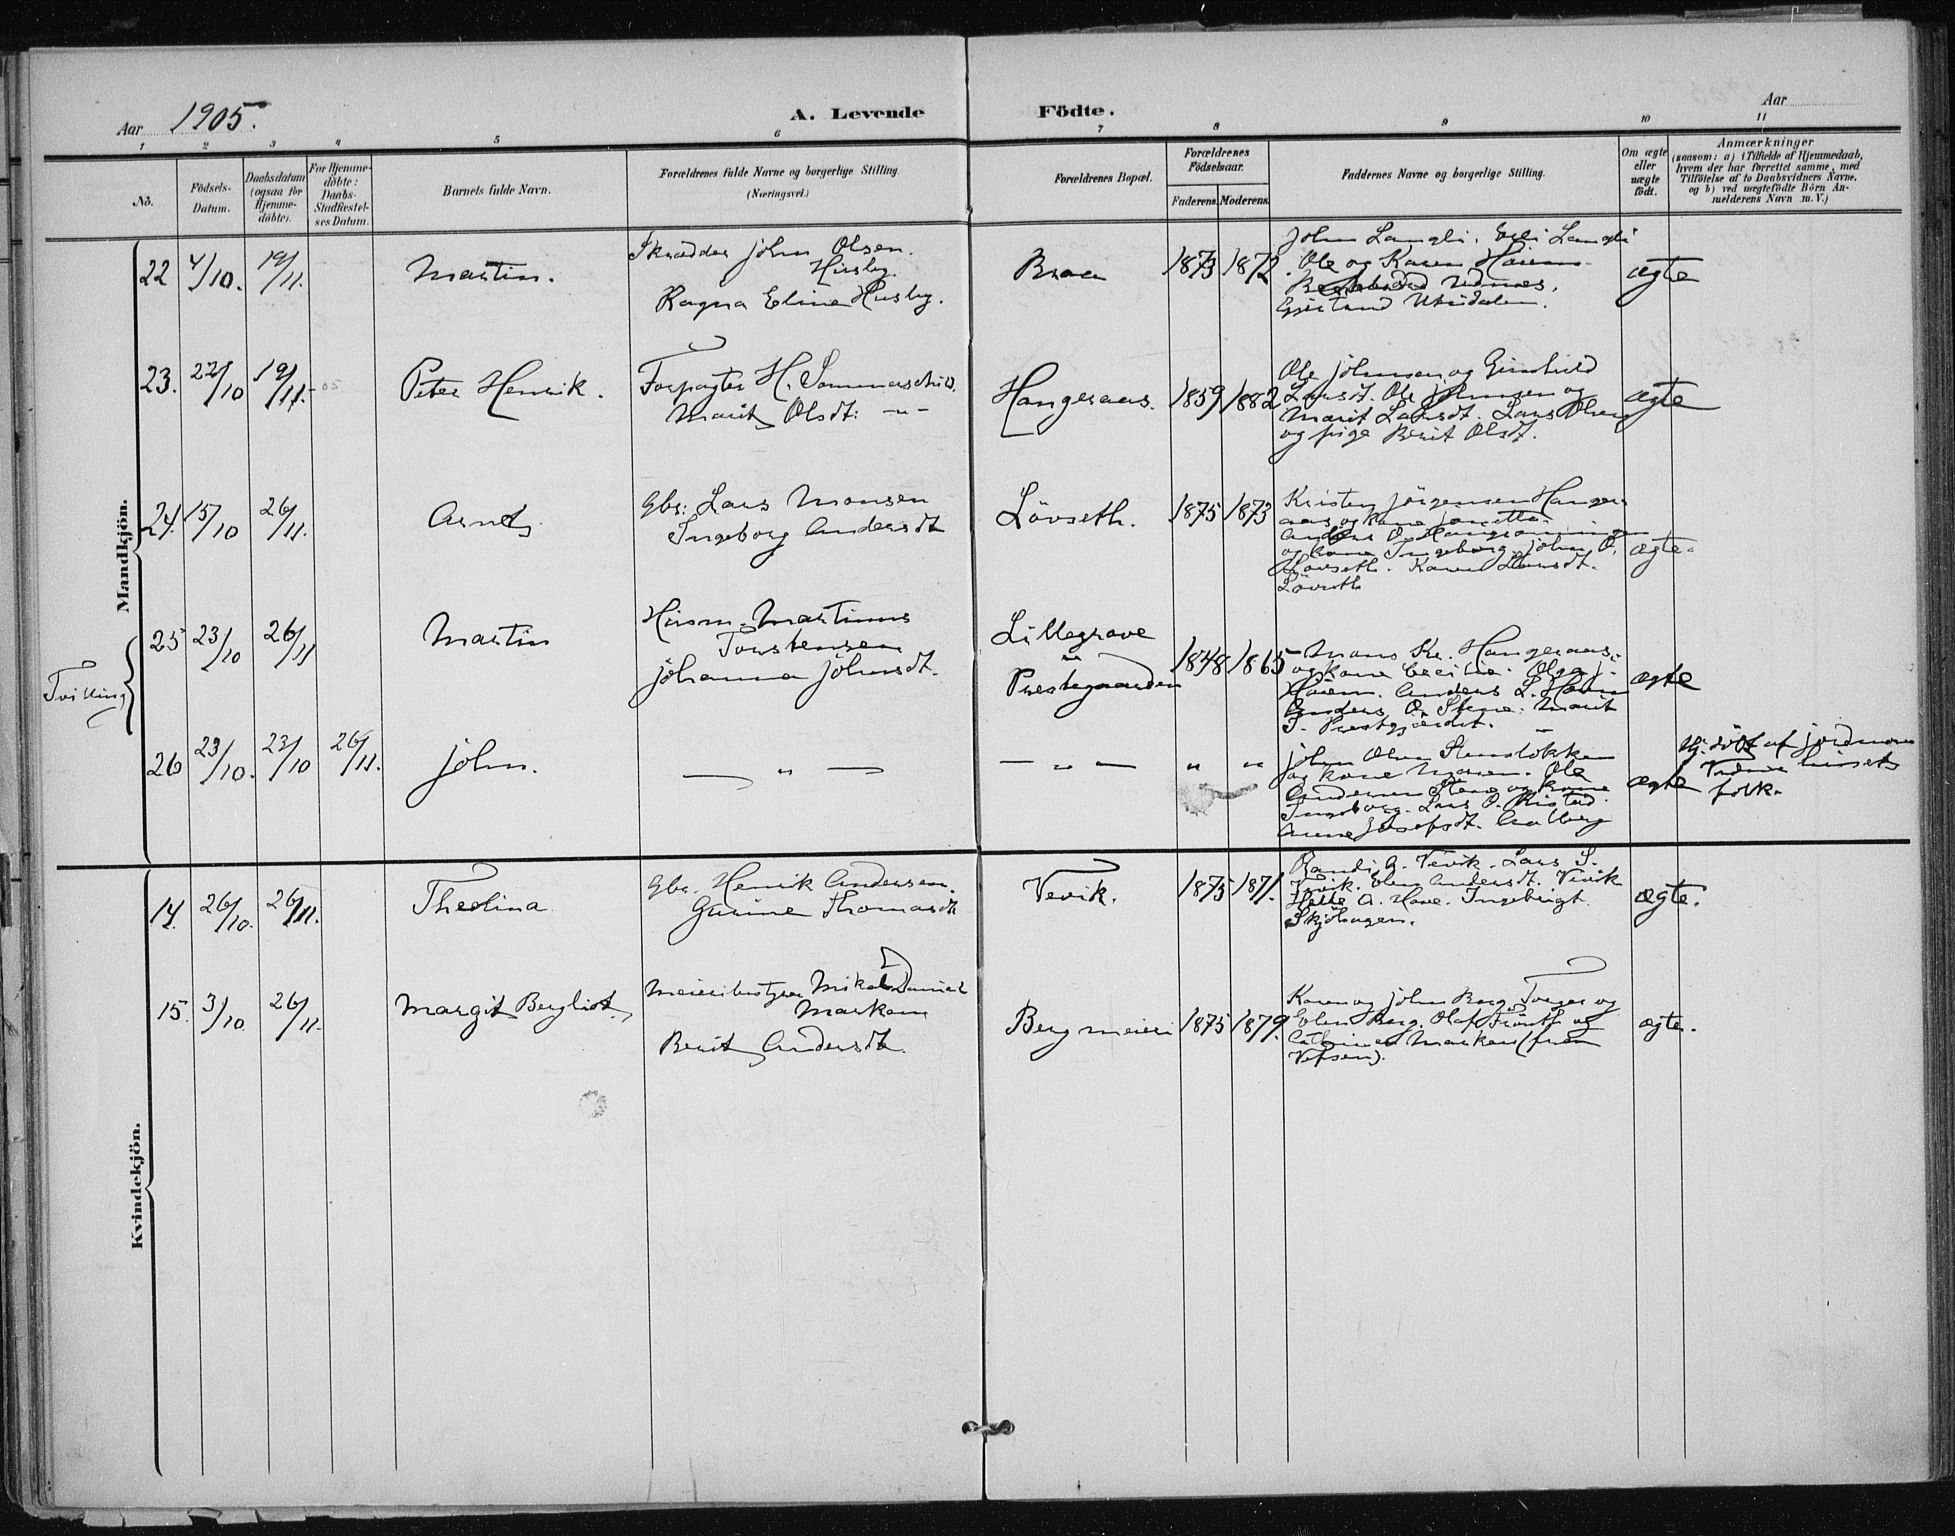 Aar 1905.
A. Levende Födte.
Aar
1 2 3 4 5 6 7 8 9 10 11
No.
Födsels-
Datum.
Daabsdatum
(ogsaa for
Hjemme-
döbte).
For Hjemme-
döbte:
Daabs-
Stadfæstel-
ses Datum.
Barnets fulde Navn.
Forældrenes fulde Navne og borgerlige Stilling
(Næringsvei.)
Forældrenes Bopæl.
Forældrenes
Födselsaar.
Faderens. Moderens.
Faddernes Navne og borgerlige Stilling.
Om ægte
eller
uægte
født.
Anmærkninger
(saasom: a) i Tilfælde af Hjemmedaab,
hvem der har forrettet samme, med
Tilföielse af to Daabsvidners Navne.
og b) ved uægtefödte Börn An-
melderens Navn m. V.)
Mandkjön.
22 4/10. 19/11. Martin.
Skrædder John Olsen
Husby.
Ragna Eline Husby.
Braa 1873 1872.
John Langli.
Ole og Karen
Udnæs.
ægte
23. 22/10 19/11. Peter Henrik.
Forpagter H. Sommerschild.
Marit Olsdt. -"-
Hangeraas. 1859 1882
Ole Johnsen og
Larsdt. Ole Johnsen og
Marit Larsdt. Lars Olsen
og pige Berit Olsdt.
ægte
24. 15/10 26/11. Arnt
Gbr: Lars Monsen
Ingeborg Andersdt
Lövseth. 1875 1873
Kristen Jörgensen Hanger-
aas og kone
Anders O.
og kone Ingeborg. John O.
Karen Larsdt.
Lövseth
ægte.
Tvilling
25 23/10 26/11 Martin
Husm. Martinus
Torstensen
Johanna Johnsdt.
Lillegrave
Prestegaarden
1848 1865
Mons Kr. Hangeraas.
og kone Cecilie. Olga J.
Anders L.
Anders O. Stene. Marit
ægte
26 23/10. 23/10 26/11. John.
— " —
— " — " "
John Olsen
og kone Maren. Ole
Andersen Stene og kone
Ingeborg. Lars O. Ristad.
Anne Josefsdt.
ægte
Hj. döbt af jordmor
husets
folk.
Kvindekjön.
14. 26/10. 26/11. Theolina
Gbr. Henrik Andersen.
Gurine Thomasdt
Vevik. 1875 1871.
Randi A. Vevik. Lars S.
Vevik. Elen Andersdt. Vevik
A. Ingebrigt
Skjöhagen.
ægte.
15. 3/10. 26/11. Margit Bergliot.
Meieribestyrer Mikal Daniel
Marken
Berit Andersdt.
Berg meieri 1875 1879.
Karen og John Berg. og
Elen Berg. Olaf og
Marken (fra
Vefsen).
ægte.